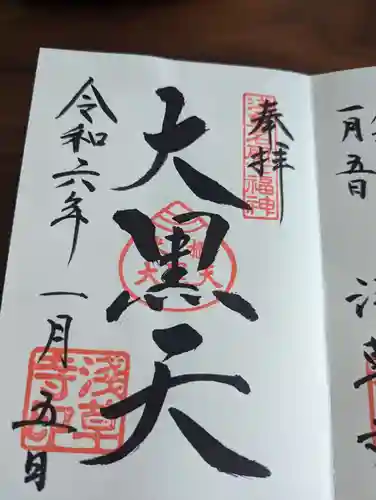 奉拝
浅草名所七福神
大黒天
大黒天
令和六年一月五日
浅草寺印
一月五日
浅草寺